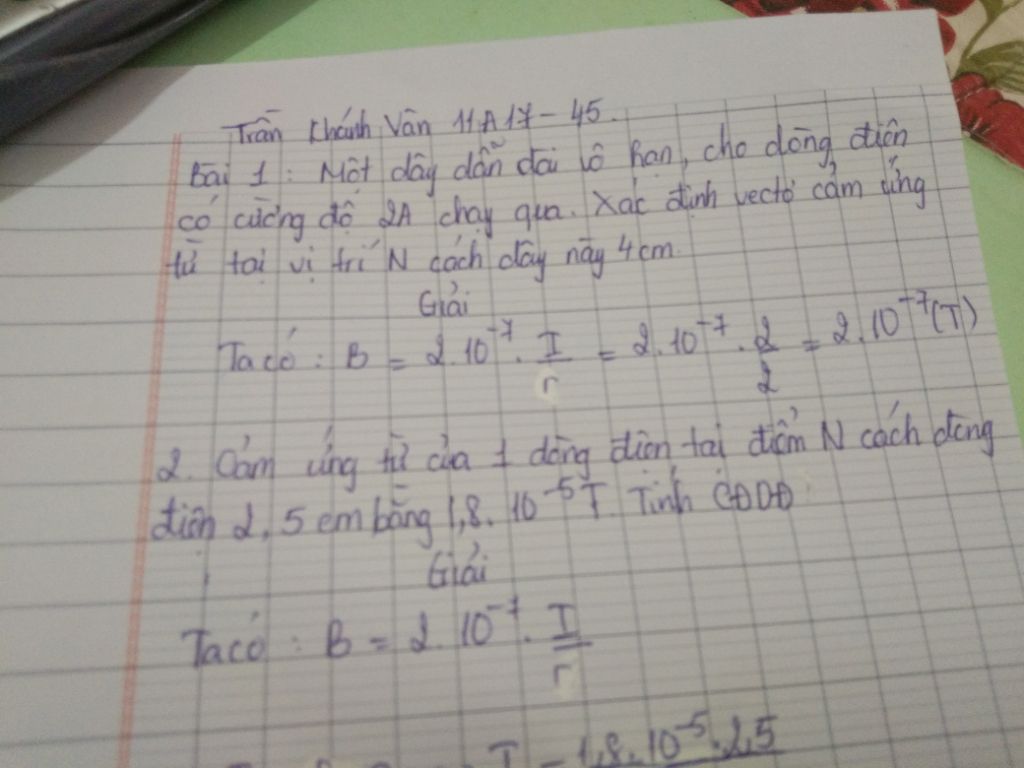 Trần Khánh Vân 11A17 - 45.
Bài 1: Một dây dẫn dài vô hạn, cho dòng điện
có cường độ 2A chạy qua. Xác định vectơ cảm ứng
từ tại vị trí N cách dây này 4cm.
Giải
Ta có : B = 2.10⁻⁷. I/r = 2.10⁻⁷. 2/2 = 2.10⁻⁷(T)
2. Cảm ứng từ của 1 dòng điện tại điểm N cách dòng
điện 2,5 cm bằng 1,8.10⁻⁵T. Tính CĐDĐ
Giải
Ta có : B = 2.10⁻⁷. I/r
I = 1,8.10⁻⁵.2,5